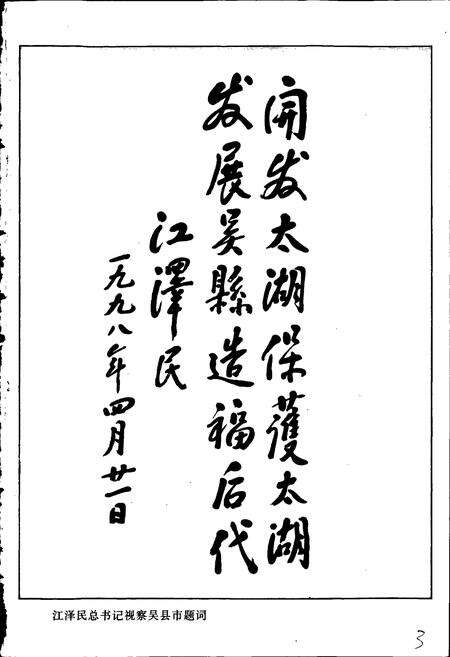 开发太湖保護太湖
发展吴縣造福后代
江澤民
一九九八年四月廿一日
江泽民总书记视察吴县市题词
3